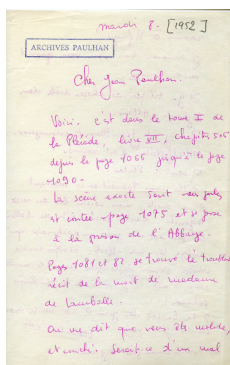 mardi 8. [1952]
ARCHIVES PAULHAN
Cher Jean Paulhan.
Voici. C'est dans le tome II de
la Pléiade, livre VII, chapitre 5
depuis la page 1065 jusqu'à la page
1090 -
La scène exacte dont vous parlez
est contée - page 1075 et se passe
à la prison de l'Abbaye.
Pages 1081 et 82 se trouve le
récit de la mort de madame
de Lamballe.
On me dit que vous êtes malade,
et couché. Serait-ce d'un mal